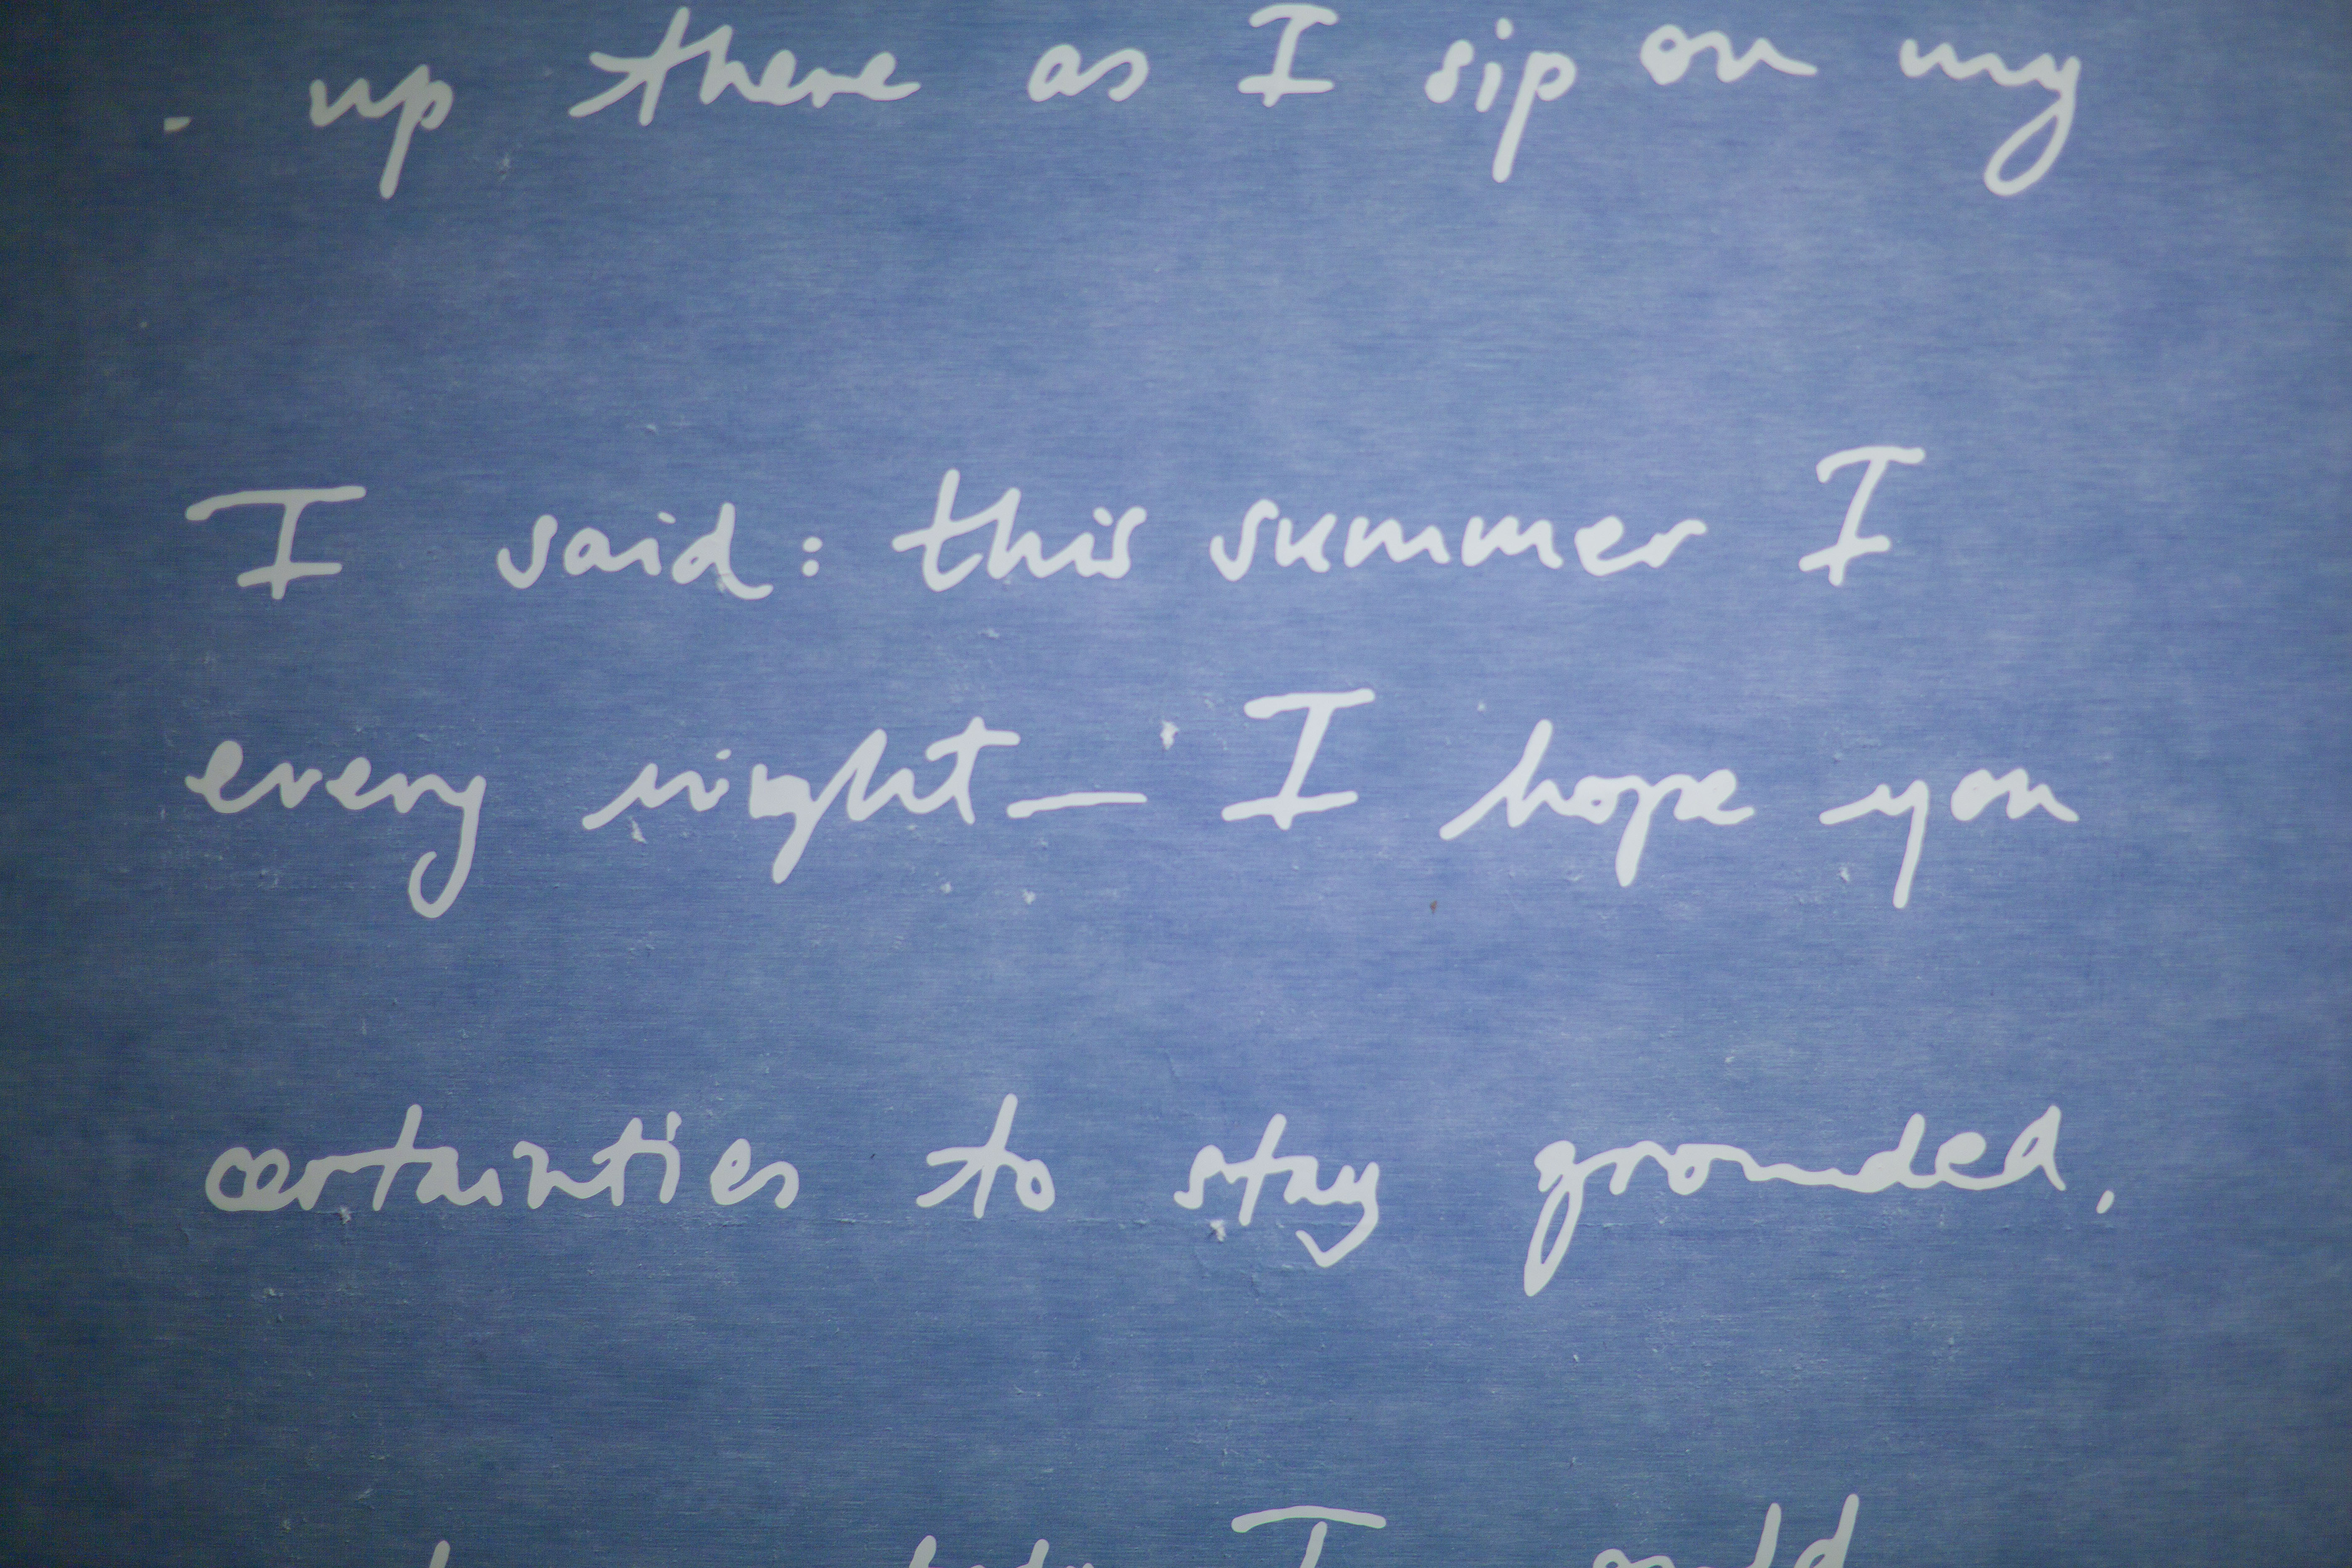 . up there as I sip on my
I said: this summer I
every night— I hope you
certainties to stay grounded.
I